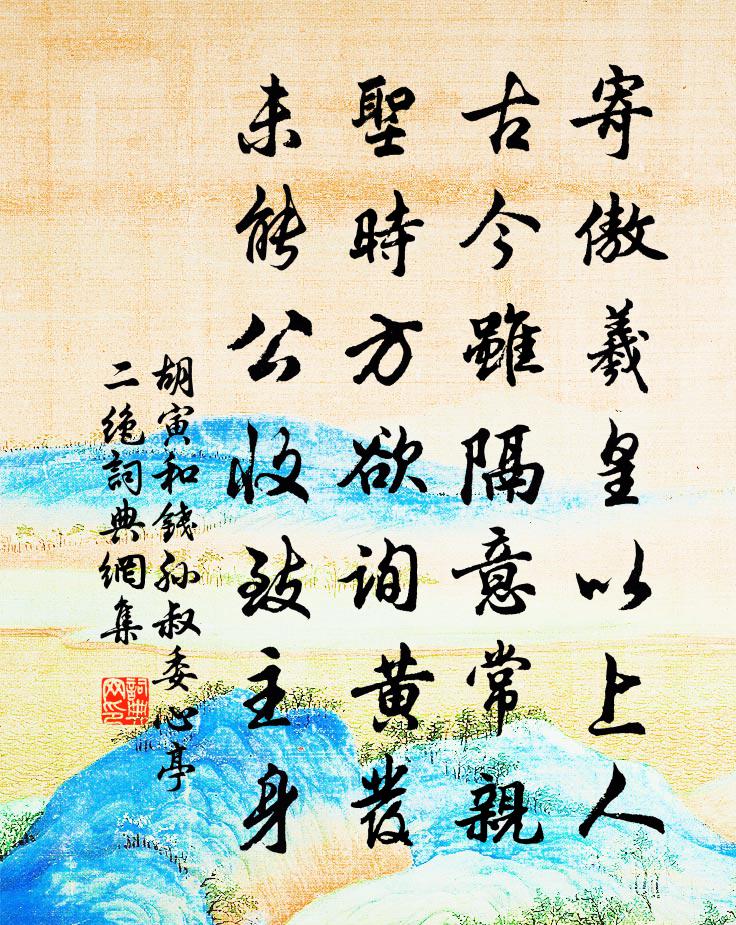 寄傲羲皇以上人
古今雖隔意常親
聖時方欲詢黃髮
未能公收致主身
胡寅和錢孙叔委心亭
二绝詞典網集
詞典网印